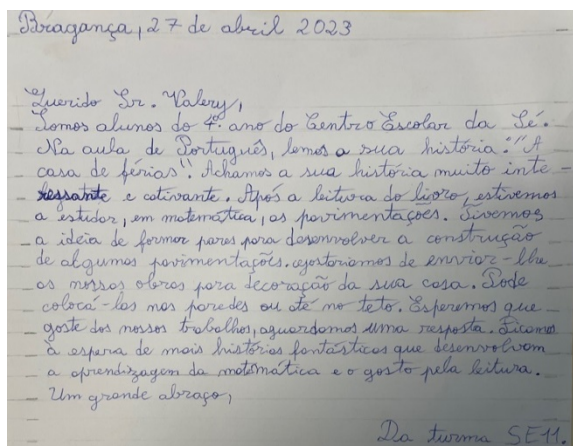 Bragança, 27 de abril 2023
Querido Sr. Valery,
Somos alunos do 4º. ano do Centro Escolar da Sé.
Na aula de Português, lemos a sua história: "A
casa de férias". Achamos a sua história muito inte-
ressante e cativante. Após a leitura do livro, estivemos
a estudar, em matemática, as pavimentações. Tivemos
a ideia de formar pares para desenvolver a construção
de algumas pavimentações. Gostaríamos de enviar-lhe
as nossas obras para decoração da sua casa. Pode
colocá-las nas paredes ou até no teto. Esperemos que
goste dos nossos trabalhos, aguardamos uma resposta. Ficamos
à espera de mais histórias fantásticas que desenvolvam
a aprendizagem da matemática e o gosto pela leitura.
Um grande abraço,
Da turma SE11.